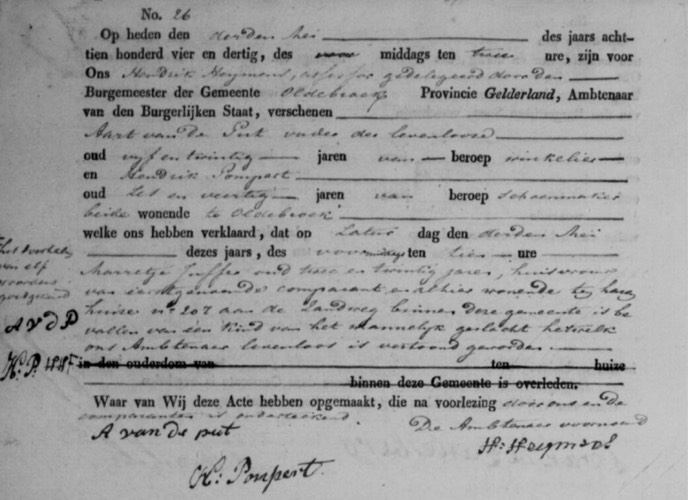 No. 26
Op heden den derden Mei des jaars acht-
tien honderd vier en dertig, des middags ten twee ure, zijn voor
Ons Hendrik Heymens, assessor gedelegeerd door den
Burgemeester der Gemeente Oldebroek Provincie Gelderland, Ambtenaar
van den Burgerlijken Staat, verschenen
Aart van de Put vader des levenloozen
oud vyf en twintig jaren van beroep winkelier
en Hendrik Pompert
oud Zes en veertig jaren van beroep schoenmaker
beide wonende te Oldebroek
welke ons hebben verklaard, dat op Zatur dag den derden Mei
dezes jaars, des voormiddags ten tien ure
Marretje Juffer oud twee en twintig jaren, huisvrouw
van eerstgenoemde comparant en alhier wonende ten haren
huize no. 207 aan de Landweg binnen deze gemeente is be
vallen van een kind van het mannelyk geslacht hetwelk
ons Ambtenaar levenloos is vertoond geworden
in den ouderdom van ten huize
binnen deze Gemeente is overleden.
Waar van Wij deze Acte hebben opgemaakt, die na voorlezing door ons en de
comparanten is onderteekend
De Ambtenaar voornoemd
A van de put
H: Heymens
H: Pompert
van elf
woorden
goedgekeurd
A V d P
H: P.